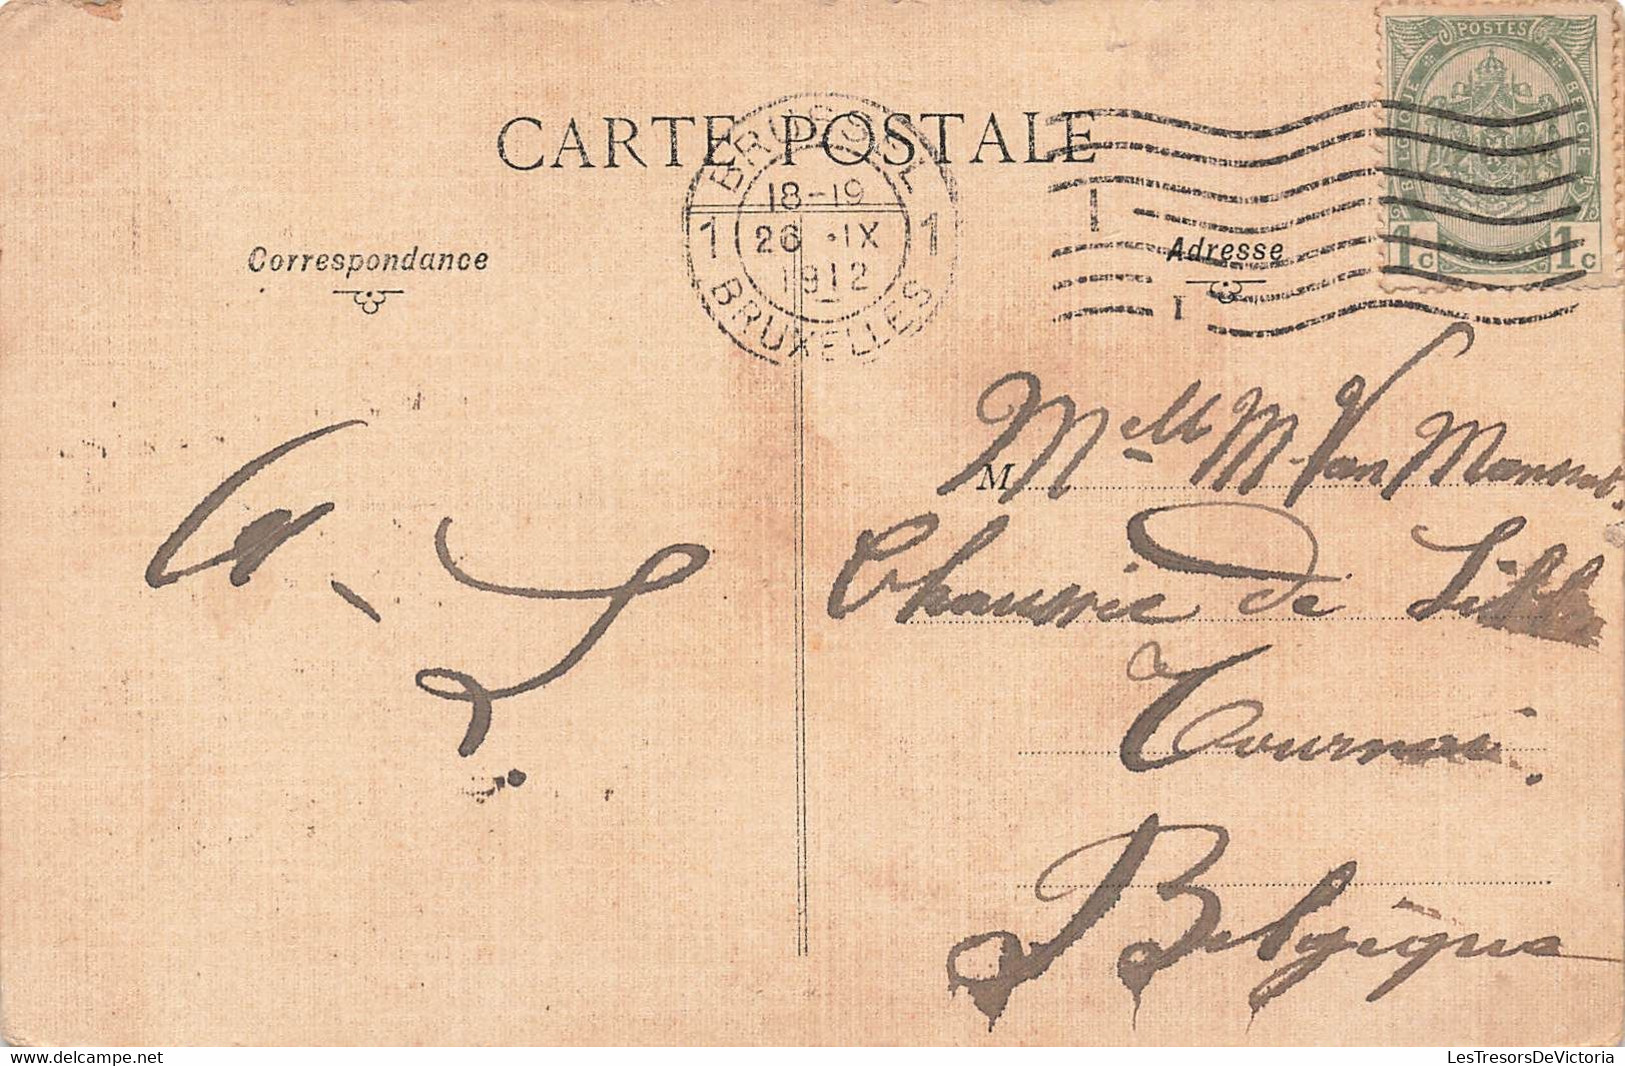 CARTE POSTALE
BRUSSEL
18-19
1 26 . IX 1
1912
BRUXELLES
POSTES
BELGIQUE BELGIE
1c 1c
Correspondance
Adresse
M Melle M. Van
Chaussée de Lille
Tournai.
Belgique
LesTresorsDeVictoria